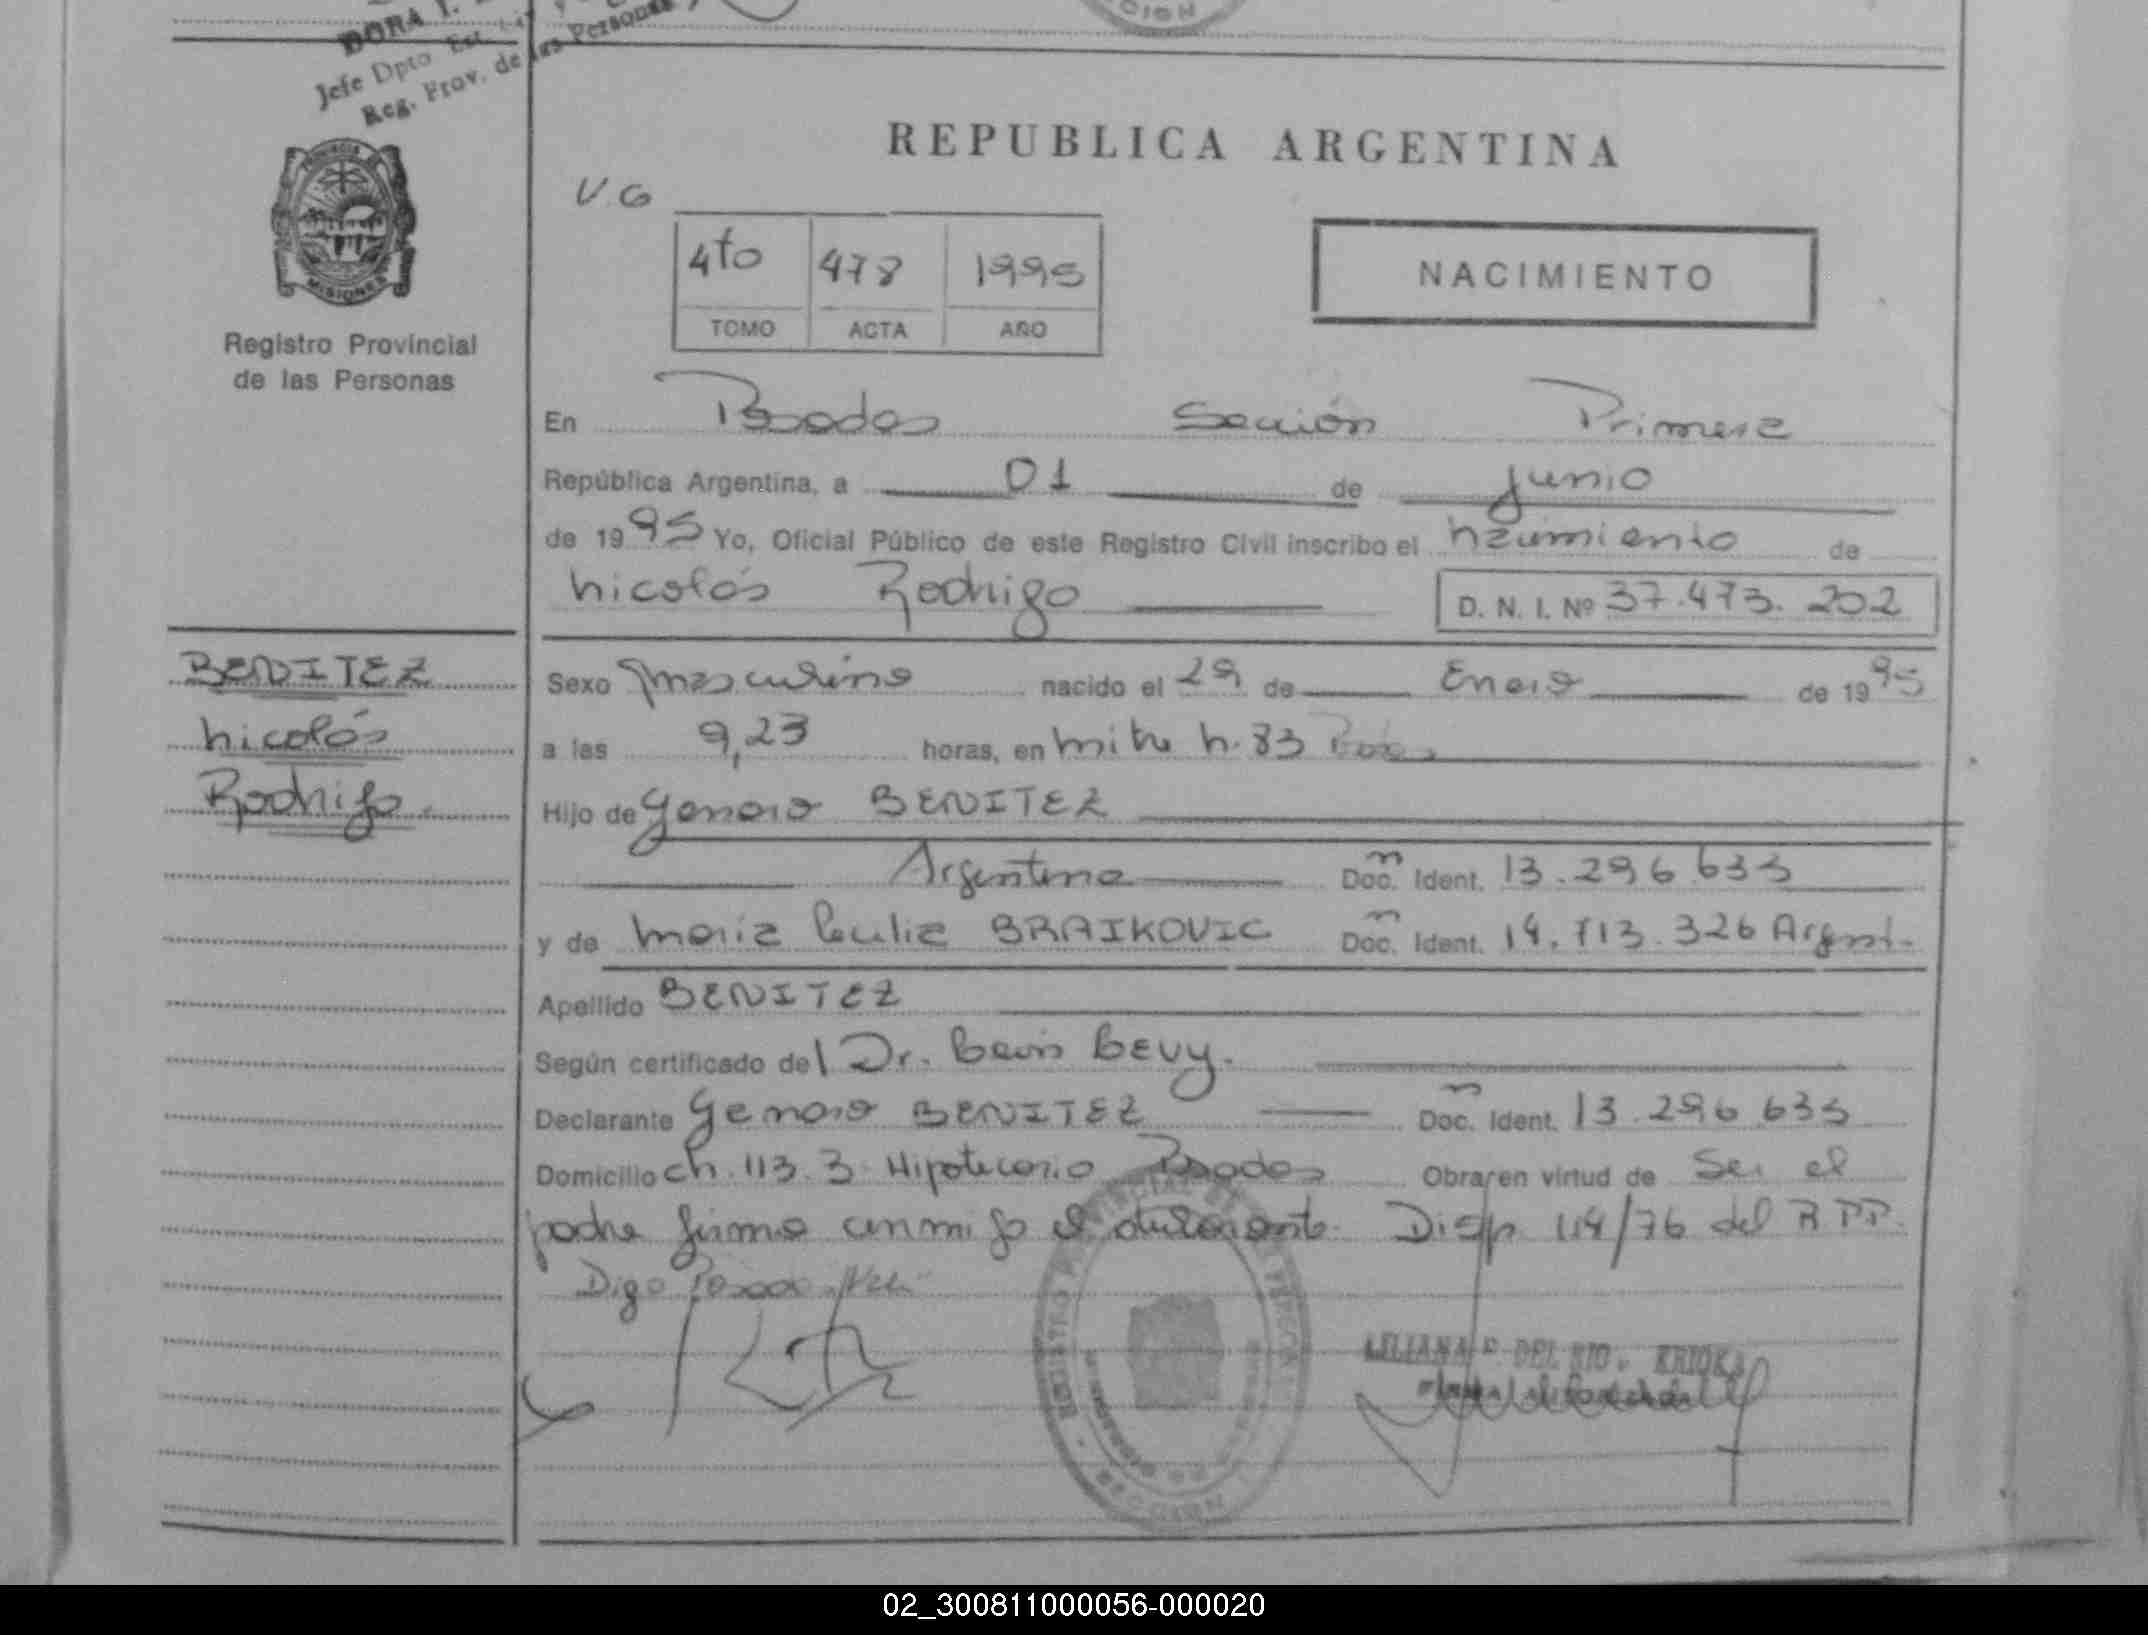 DORA I.
Jefe Dpto Est.
Reg. Prov. de las Personas
CION
PROVINCIA
MISIONES
Registro Provincial
de las Personas
REPUBLICA ARGENTINA
V.G
4to 478 1995
TOMO ACTA AÑO
NACIMIENTO
En Posadas Sección Primera
República Argentina, a 01 de junio
de 1995 Yo, Oficial Público de este Registro Civil inscribo el nacimiento de
Nicolás Rodrigo D. N. I. Nº 37.473.202
BENITEZ
Nicolás
Rodrigo.
Sexo masculino nacido el 29 de Enero de 1995
a las 9,23 horas, en Mitre N. 83 Pdas
Hijo de Genaro BENITEZ
Argentino Doc. Ident. 13.296.633
y de María BRAIKOVIC Doc. Ident. 14.713.326 Argent.
Apellido BENITEZ
Según certificado del Dr.
Declarante Genaro BENITEZ Doc. Ident. 13.296.633
Domicilio ch. 113. 3 Hipotecario Posadas Obra en virtud de Ser el
padre firma conmigo el declarante. Disp 114/76 del R.P.P.
Digo
LILIANA DEL RIO
SECCION
02_300811000056-000020